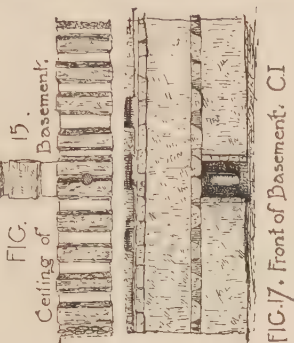 FIG. 15.
Ceiling of Basement.
FIG. 17. Front of Basement. C.I